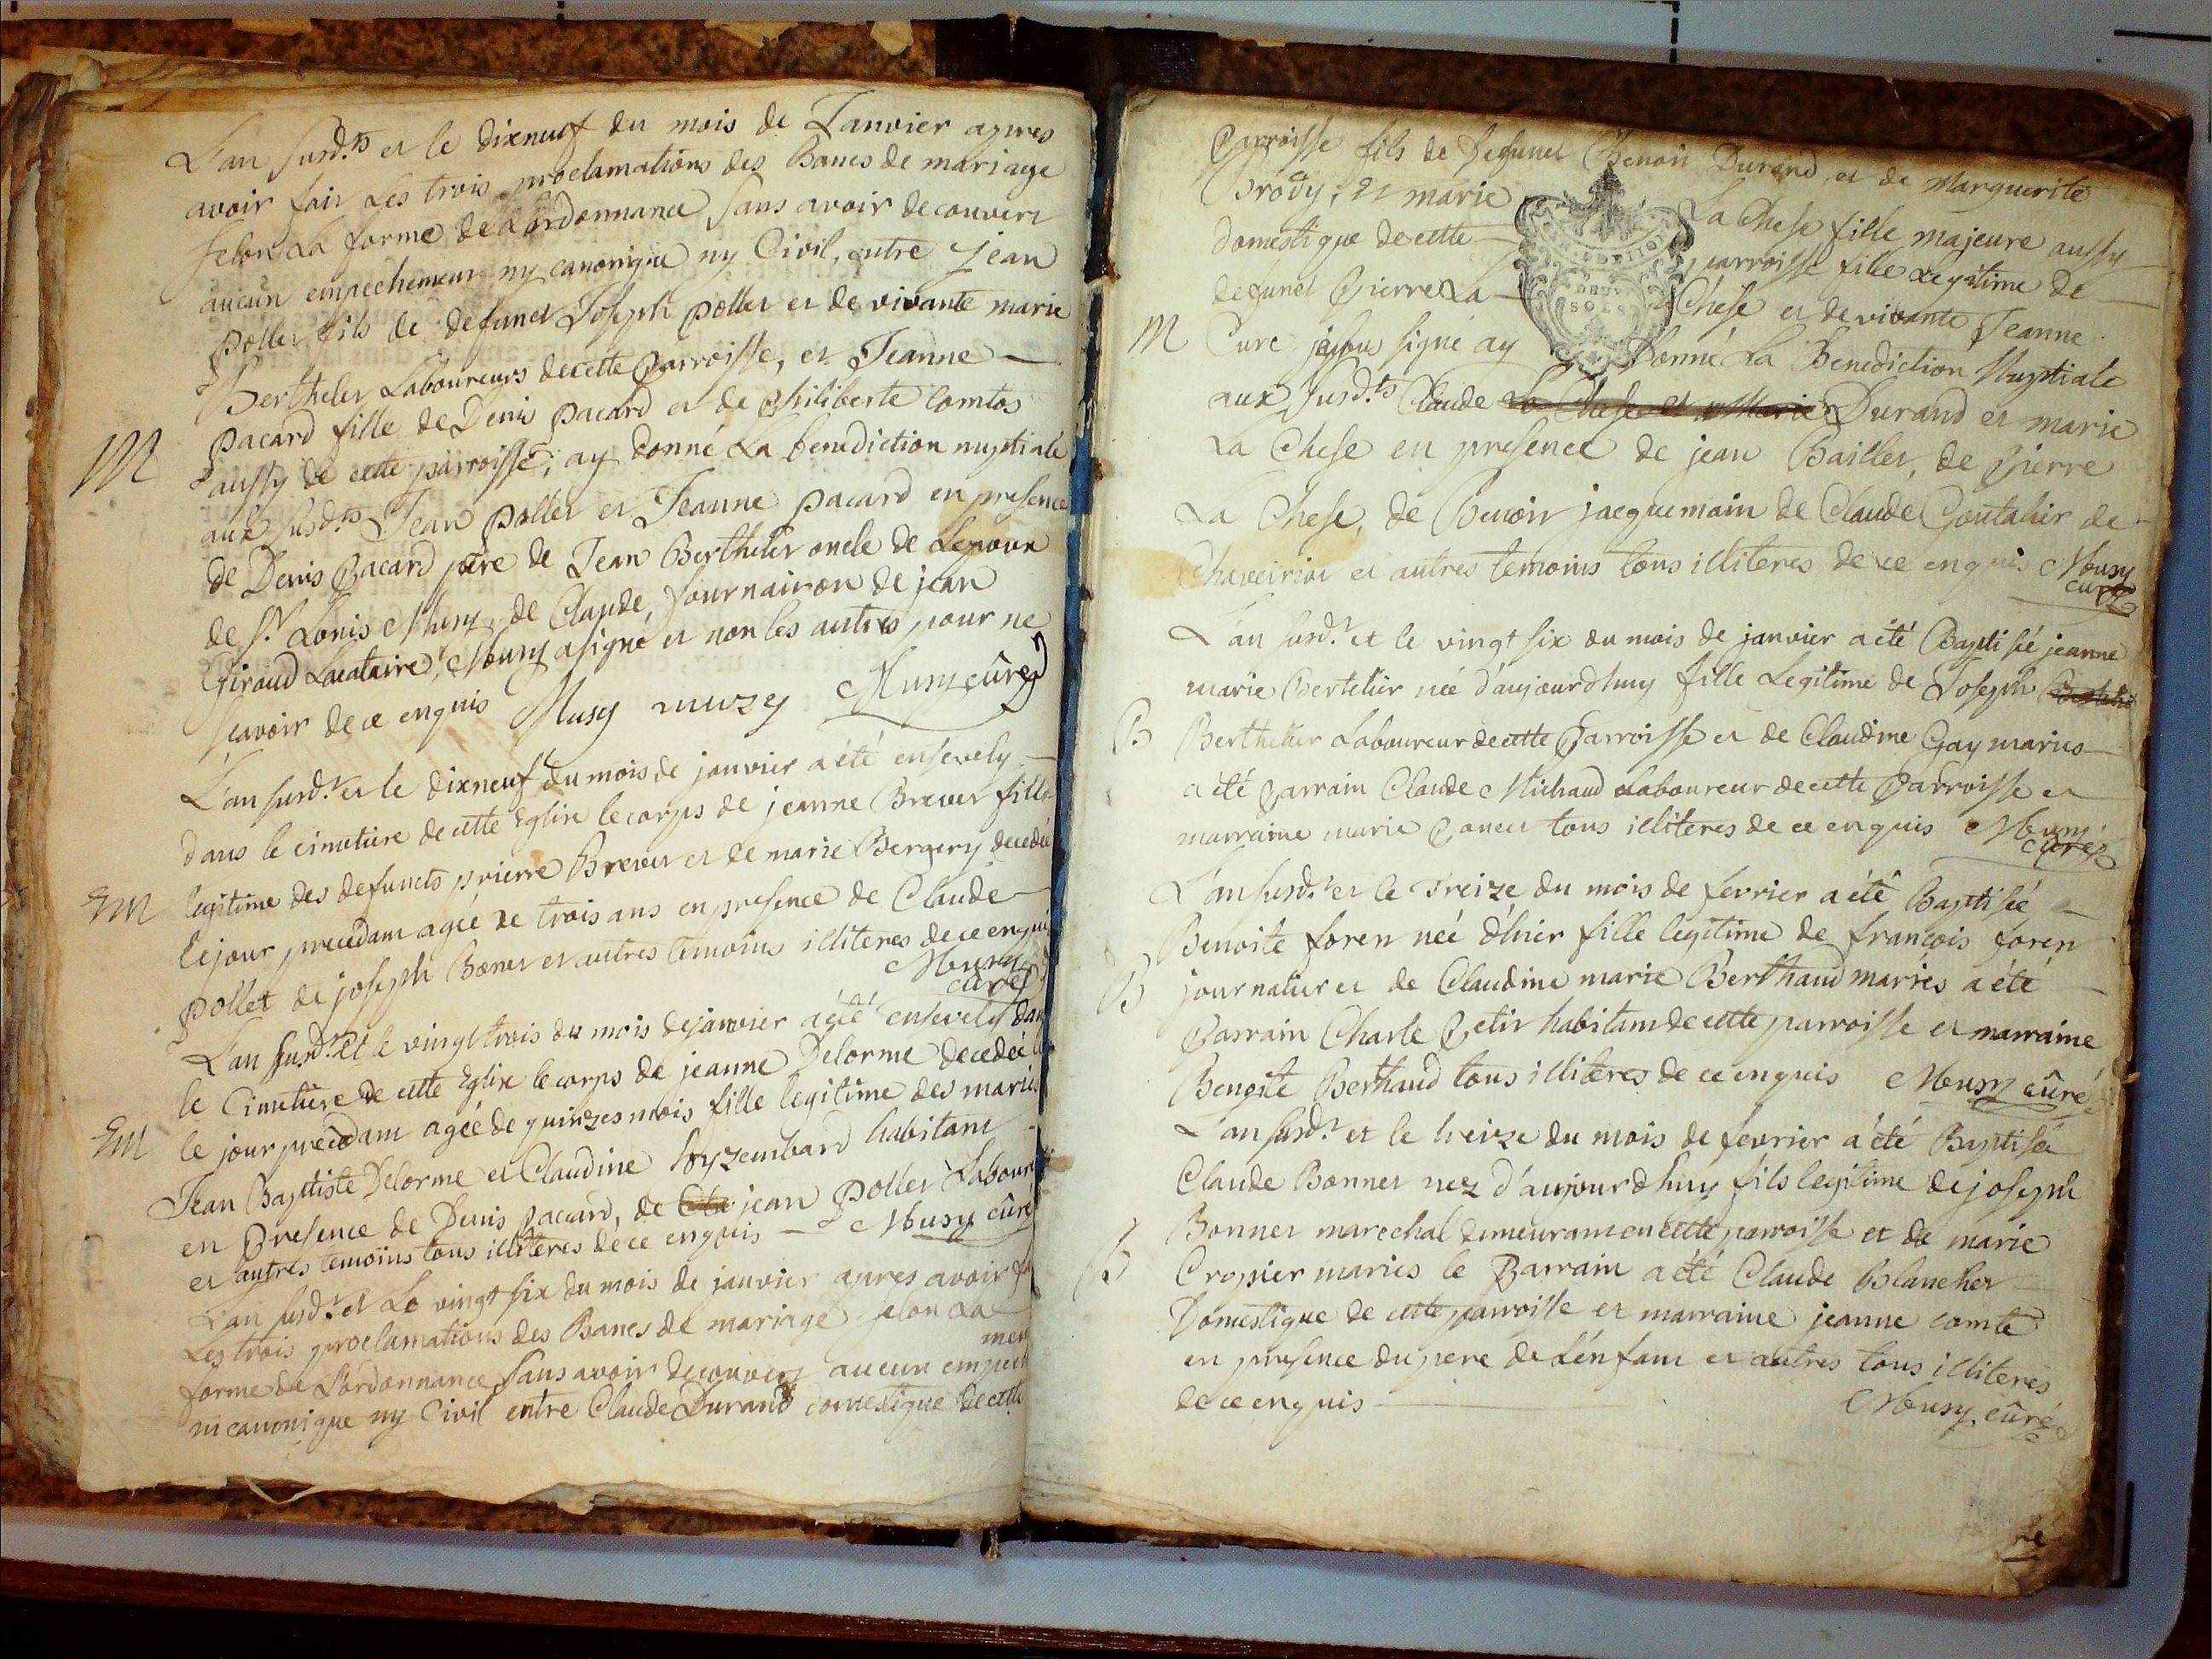 L'an susd.ts et le dixneuf du mois de Janvier apres
avoir fait Les trois proclamations des Bancs de mariage
selon La forme de Lordonnance sans avoir decouvert
aucun empechement ny canonique ny Civil, entre Jean
pollet fils de defunct Joseph pollet et de vivante marie
Berthelet Laboureurs decette Parroisse, et Jeanne
M
pacard fille de Denis pacard et de philiberte comtos
aussy de cette parroisse, ay donné La benediction nuptiale
aux susd.ts Jean pollet et Jeanne pacard en presence
de Denis Pacard pere de Jean Berthelet oncle de Lepoux
de S.r Louis Musy, de Claude, fournairon de jean
Giraud Locataire, Mousy asigné et non les autres pour ne
scavoir de ce enquis Musy muzy Musy cûré
L'an susd.t et le dixneuf du mois de janvier a été ensevely
dans le cimetiere de cette Eglise le corps de jeanne Brevet fille
Em
legitime des defuncts prierre Brevet et de marie Bergery decedée
le jour precedant agée de trois ans en presence de Claude
pollet de joseph Bonnet et autres temoins illiteres de ce enquis
Mousy
curé
L'an susd.t et le vingt trois du mois dejanvier a été ensevely dans
le Cimetiere de cette Eglise le corps de jeanne Delorme decedée
Em
le jour precedant agée de quinzes mois fille legitime des mariés
Jean Baptiste Delorme et Claudine habitant
en Presence de Denis pacard, de Cla jean pollet Labour
et autres temoins tous illiteres de ce enquis Mousy cûré
L'an susd.t et Le vingt six du mois de janvier apres avoir fai
Les trois proclamations des Bancs de mariage selon La
forme de L'ordonnance sans avoir decouvert aucun empech
ment
ni canonique ny Civil entre Claude Durand domestique de cette
Parroisse fils de Defunct Benoit Durand, et de Marguerite
Brody, et marie La Chese fille majeure aussy
domestique de cette parroisse fille Legitime de
defunct Pierre La Chese et de vivante Jeanne
M
Curé soussigné ay Donné La Benediction Nuptiale
aux susd.ts Claude La Chese et Marie Durand et marie
La Chese en presence de jean Baillet, de Pierre
La Chese, de Benoit jacquemain de Claude Goutahir de
Chaveiriat et autres temoins tous illiteres de ce enquis Mousy
curé
L'an susd.t et le vingt six du mois de janvier a été Baptisée jeanne
marie Bertelier née d'aujourdhuy fille Legitime de Joseph Berthelie
B
Berthelier Laboureur de cette Parroisse et de Claudine Gay mariés
a été Parrain Claude Michaud Laboureur de cette Parroisse et
marraine marie Poncet tous illiteres de ce enquis Mousy
curé
L'an susd.t et le Treize du mois de fevrier a été Baptisée
Benoite foren née d'hier fille legitime de francois foren
B
journalier et de Claudine marie Berthaud mariés a été
Parrain Charle Petit habitant de cette parroisse et marraine
Benoite Berthaud tous illiteres de ce enquis Mousy cûré
L'an susd.t et le treize du mois de fevrier a été Baptisé
Claude Bonnet nez d'aujourdhuy fils legitime de joseph
Bonnet marechal demeurant en cette parroisse et de marie
B
Cropier mariés le Parrain a été Claude Blanchet
Domestique de cette parroisse et marraine jeanne comte
en presence du pere de L'enfant et autres tous illiteres
de ce enquis
Mousy cûré